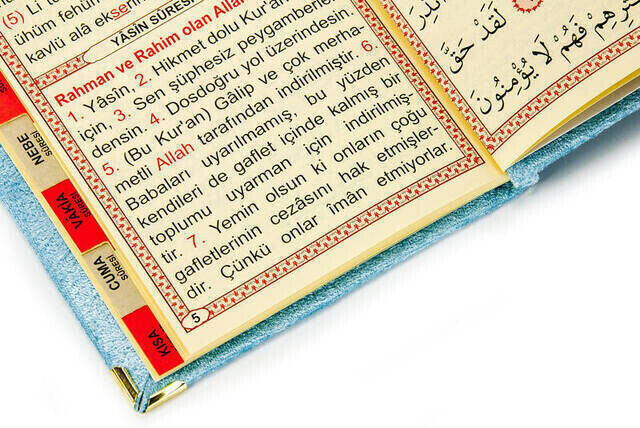 (5) Li
ühüm fehüm
kavlü alâ ekserih
YÂSÎN SÛRESİ
Rahman ve Rahim olan Allah
1. Yâsîn, 2. Hikmet dolu Kur'an
için, 3. Sen şüphesiz peygamberler
densin. 4. Dosdoğru yol üzerindesin.
5. (Bu Kur'an) Gâlip ve çok merha-
metli Allah tarafından indirilmiştir. 6.
Babaları uyarılmamış, bu yüzden
kendileri de gaflet içinde kalmış bir
toplumu uyarman için indirilmiş-
tir. 7. Yemin olsun ki onların çoğu
gafletlerinin cezâsını hak etmişler-
dir. Çünkü onlar imân etmiyorlar.
5
NEBE
SÛRESİ
VÂKIA
SÛRESİ
CUMA
SÛRESİ
KISA
لَقَدْ حَقَّ
فَهُمْ لَا يُؤْمِنُونَ